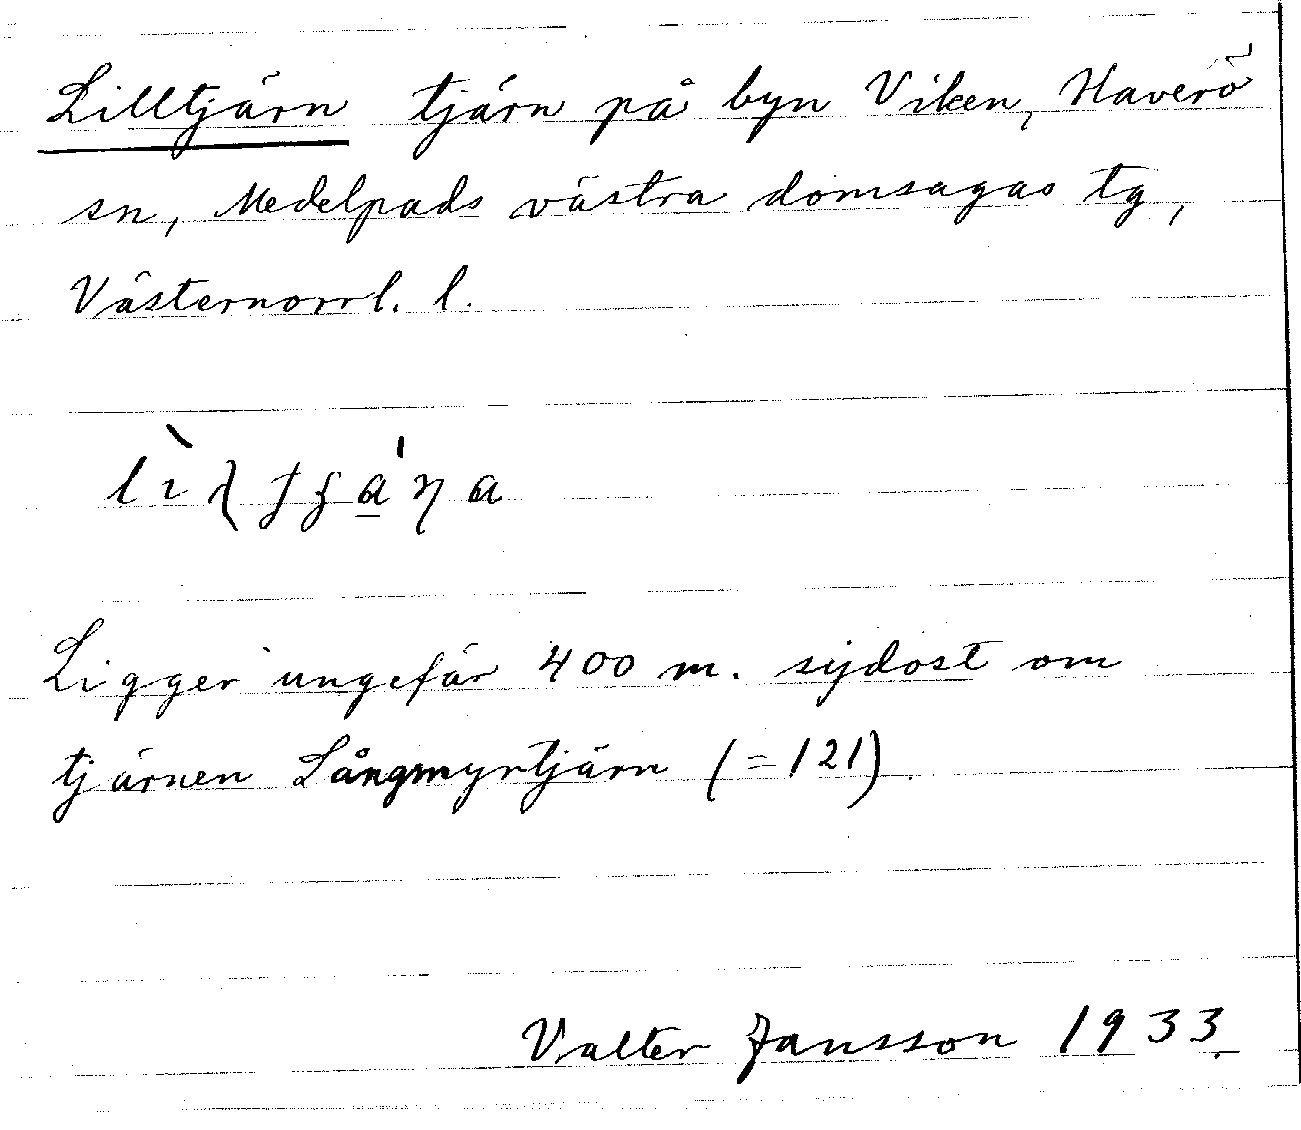 Lilltjärn tjärn på byn Viken, Haverö
sn, Medelpads västra domsagas tg,
Västernorrl. l.
Ligger ungefär 400 m. sydost om
tjärnen Långmyrtjärn (=121)
Valter Jansson 1933.